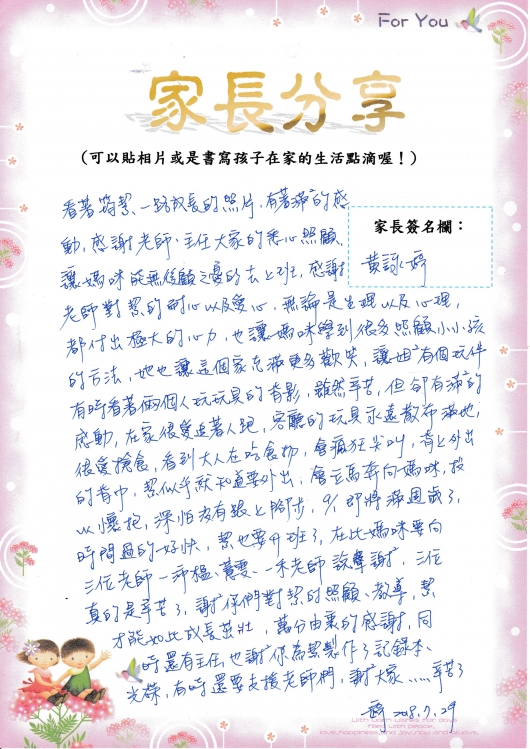 For You
家長分享
(可以貼相片或是書寫孩子在家的生活點滴喔！)
家長簽名欄：
黃詠婷
看著筠絜、一路成長的照片，有著滿滿的感
動，感謝老師、主任大家的悉心照顧，
讓媽咪能無後顧之憂的去上班，感謝
老師對絜的耐心以及愛心，無論是生理以及心理，
都付出極大的心力，也讓媽咪學到很多照顧小小孩
的方法，她也讓這個家充滿更多歡笑，讓姐姐有個玩伴
有時看著倆個人玩玩具的背影，雖然辛苦，但卻有滿滿的
感動，在家很愛追著人跑，客廳的玩具永遠散布滿地，
很愛搶食，看到大人在吃食物，會瘋狂尖叫，背上外出
的背巾，絜似乎就知道要外出，會立馬奔向媽咪，投
以懷抱，深怕沒有跟上腳步，9/1 即將滿週歲了，
時間過的好快，絜也要升班了，在此媽咪要向
三位老師 說聲謝謝，三位
真的是辛苦了，謝謝你們對絜的照顧、教導，絜
才能如此成長茁壯，萬分由衷的感謝，同
時還有主任，也謝謝你為絜製作了記錄本、
光碟，有時還要支援老師們，謝謝大家.....辛苦了
2018.7.29
with warm wishes for days
filled with peace,
love, happiness and joy, now and always.